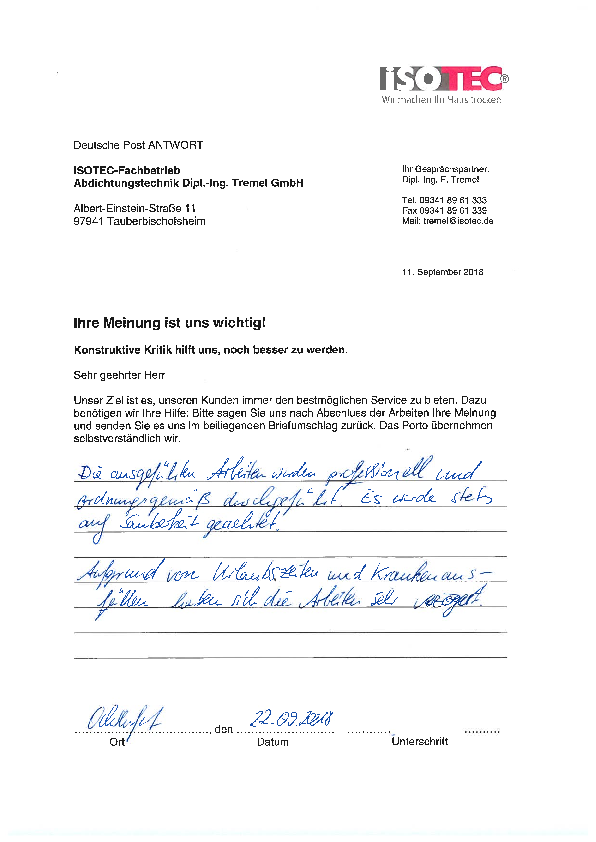 ISOTEC®
Wir machen Ihr Haus trocken
Deutsche Post ANTWORT
ISOTEC-Fachbetrieb
Abdichtungstechnik Dipl.-Ing. Tremel GmbH
Albert-Einstein-Straße 11
97941 Tauberbischofsheim
Ihr Gesprächspartner:
Dipl.-Ing. E. Tremel
Tel. 09341 89 61 333
Fax 09341 89 61 339
Mail: tremel@isotec.de
11. September 2018
Ihre Meinung ist uns wichtig!
Konstruktive Kritik hilft uns, noch besser zu werden.
Sehr geehrter Herr
Unser Ziel ist es, unseren Kunden immer den bestmöglichen Service zu bieten. Dazu
benötigen wir Ihre Hilfe: Bitte sagen Sie uns nach Abschluss der Arbeiten Ihre Meinung
und senden Sie es uns im beiliegenden Briefumschlag zurück. Das Porto übernehmen
selbstverständlich wir.
Die ausgeführten Arbeiten wurden professionell und
ordnungsgemäß durchgeführt. Es wurde stets
auf Sauberkeit geachtet.
Aufgrund von Urlaubszeiten und Krankenaus-
fällen haben sich die Arbeiten sehr verzögert.
22.09.2018
, den
Ort
Datum
Unterschrift